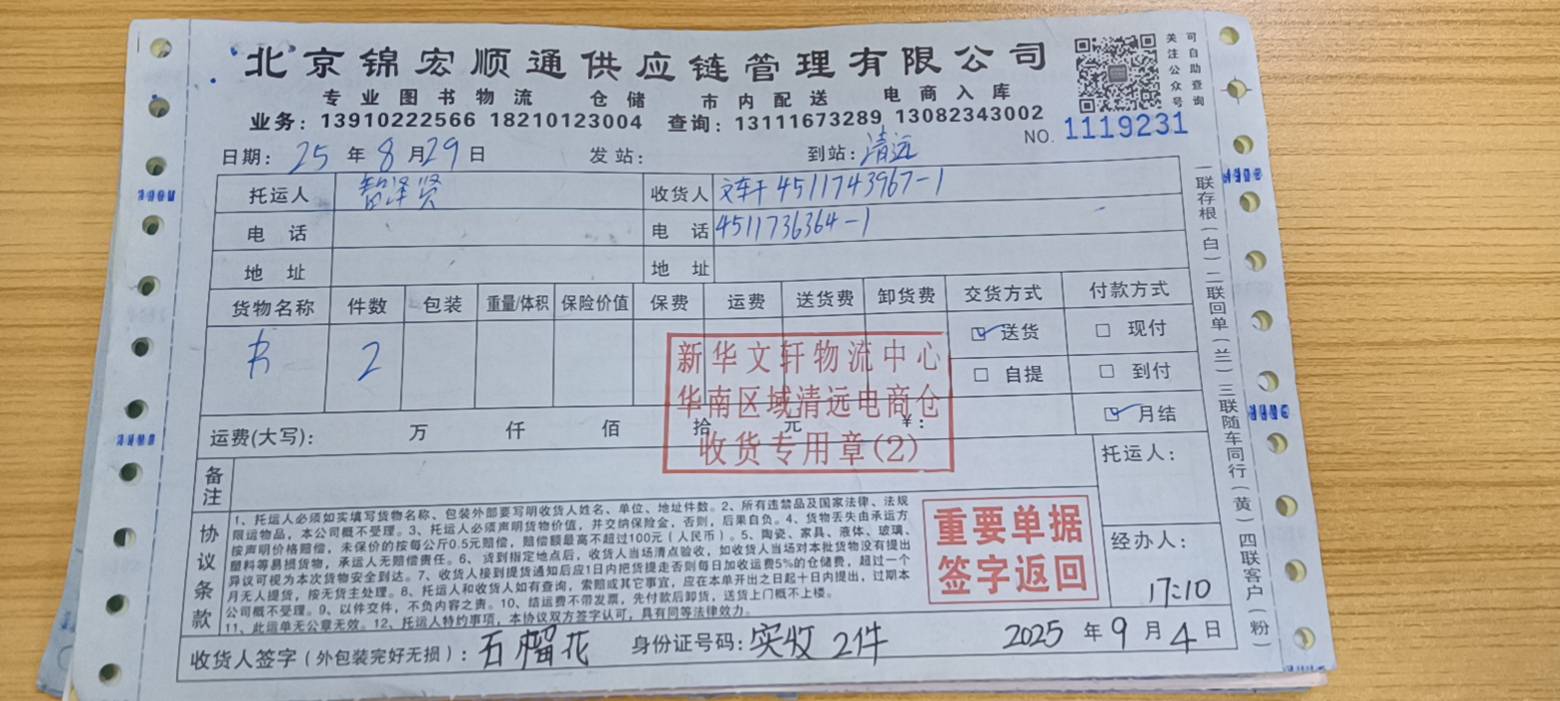 北京锦宏顺通供应链管理有限公司
可自助查询
关注公众号
专业图书物流 仓储 市内配送 电商入库
业务：13910222566 18210123004 查询：13111673289 13082343002
NO. 1119231
日期：25年8月29日 发站： 到站：清远
托运人 智泽贤 收货人 文轩 4511743967-1
电话 电话 4511736364-1
地址 地址
货物名称 件数 包装 重量/体积 保险价值 保费 运费 送货费 卸货费 交货方式 付款方式
书 2 送货 现付
自提 到付
月结
新华文轩物流中心
华南区域清远电商仓
收货专用章(2)
运费(大写)： 万 仟 佰 拾 元 ￥：
备注
托运人：
协议条款
1、托运人必须如实填写货物名称、包装外部要写明收货人姓名、单位、地址件数。2、所有违禁品及国家法律、法规
限运物品，本公司概不受理。3、托运人必须声明货物价值，并交纳保险金，否则，后果自负。4、货物丢失由承运方
按声明价格赔偿，未保价的按每公斤0.5元赔偿，赔偿额最高不超过100元（人民币）。5、陶瓷、家具、液体、玻璃、
塑料等易损货物，承运人无赔偿责任。6、货到指定地点后，收货人当场清点验收，如收货人当场对本批货物没有提出
异议可视为本次货物安全到达。7、收货人接到提货通知后应1日内把货提走否则每日加收运费5%的仓储费，超过一个
月无人提货，按无货主处理。8、托运人和收货人如有查询，索赔或其它事宜，应在本单开出之日起十日内提出，过期本
公司概不受理。9、以件交件，不负内容之责。10、结运费不带发票，先付款后卸货，送货上门概不上楼。
11、此运单无公章无效。12、托运人特约事项，本协议双方签字认可，具有同等法律效力。
重要单据
签字返回
经办人：
17:10
收货人签字（外包装完好无损）：石榴花 身份证号码：实收 2件 2025年9月4日
一联存根（白）二联回单（兰）三联随车同行（黄）四联客户（粉）